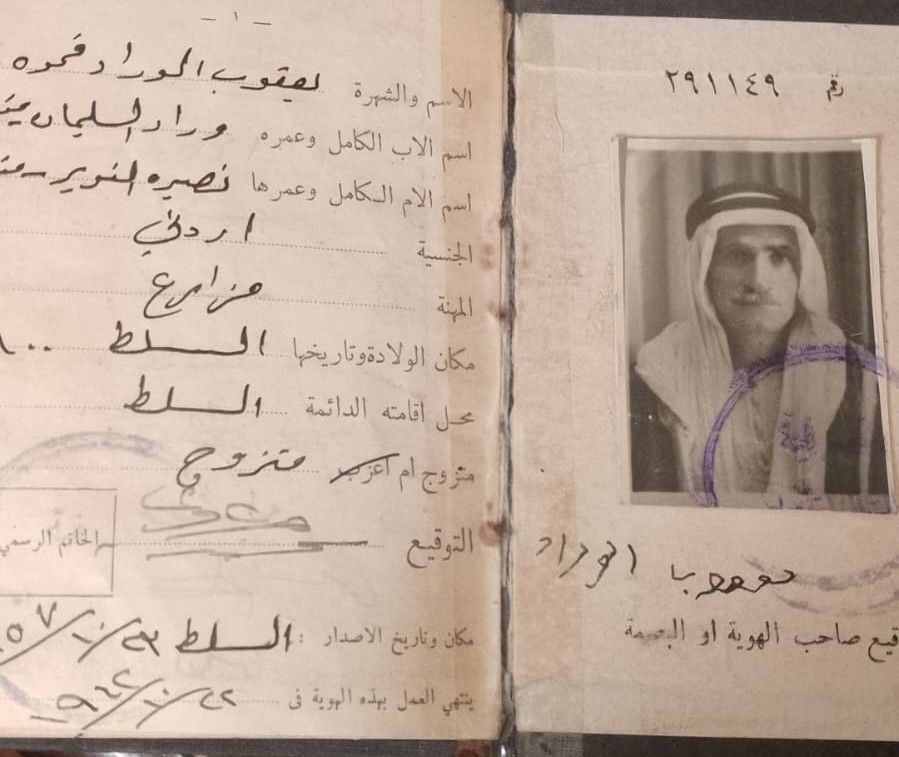 - ١ -
الاسم والشهرة يعقوب الوراد فحوه
اسم الاب الكامل وعمره وراد السليمان
اسم الام الكامل وعمرها نصيره
الجنسية اردني
المهنة مزارع
مكان الولادة وتاريخها السلط
محل اقامته الدائمة السلط
متزوج ام اعزب متزوج
التوقيع
الخاتم الرسمي
مكان وتاريخ الاصدار : السلط
ينتهي العمل بهذه الهوية في
رقم ٢٩١١٤٩
يعقوب الوراد
صاحب الهوية او البصمة